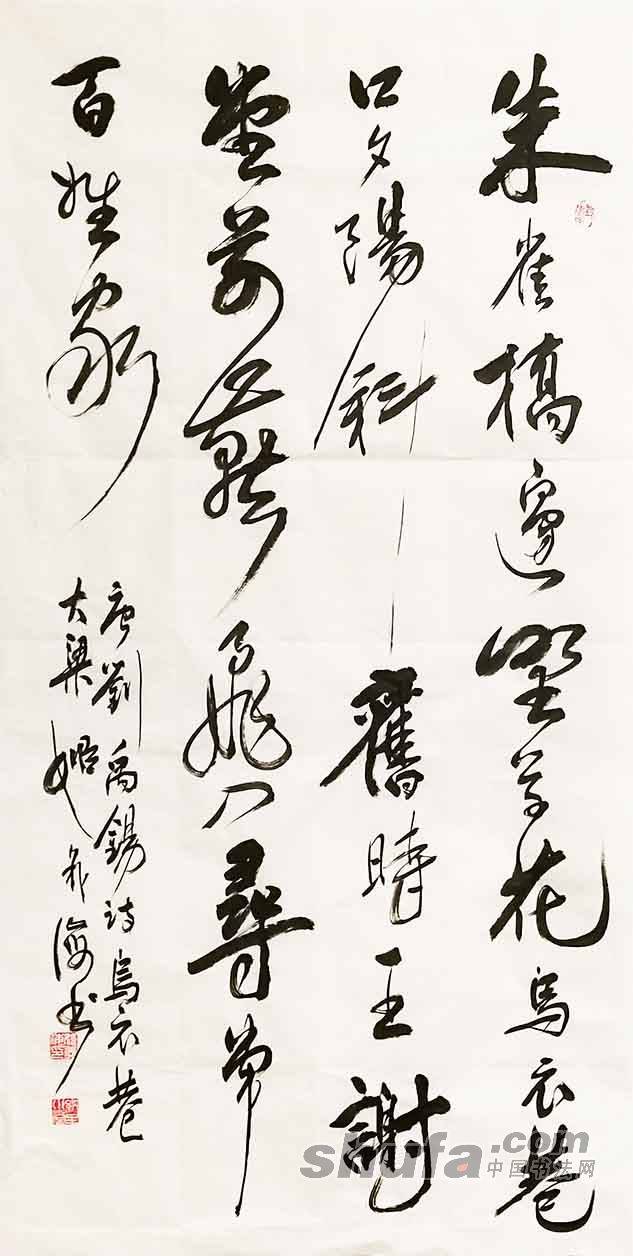 朱雀橋邊野草花烏衣巷
口夕陽斜舊時王謝
堂前燕飛入尋常
百姓家
唐劉禹錫詩烏衣巷
大梁姬海书
shufa.com
中国书法网